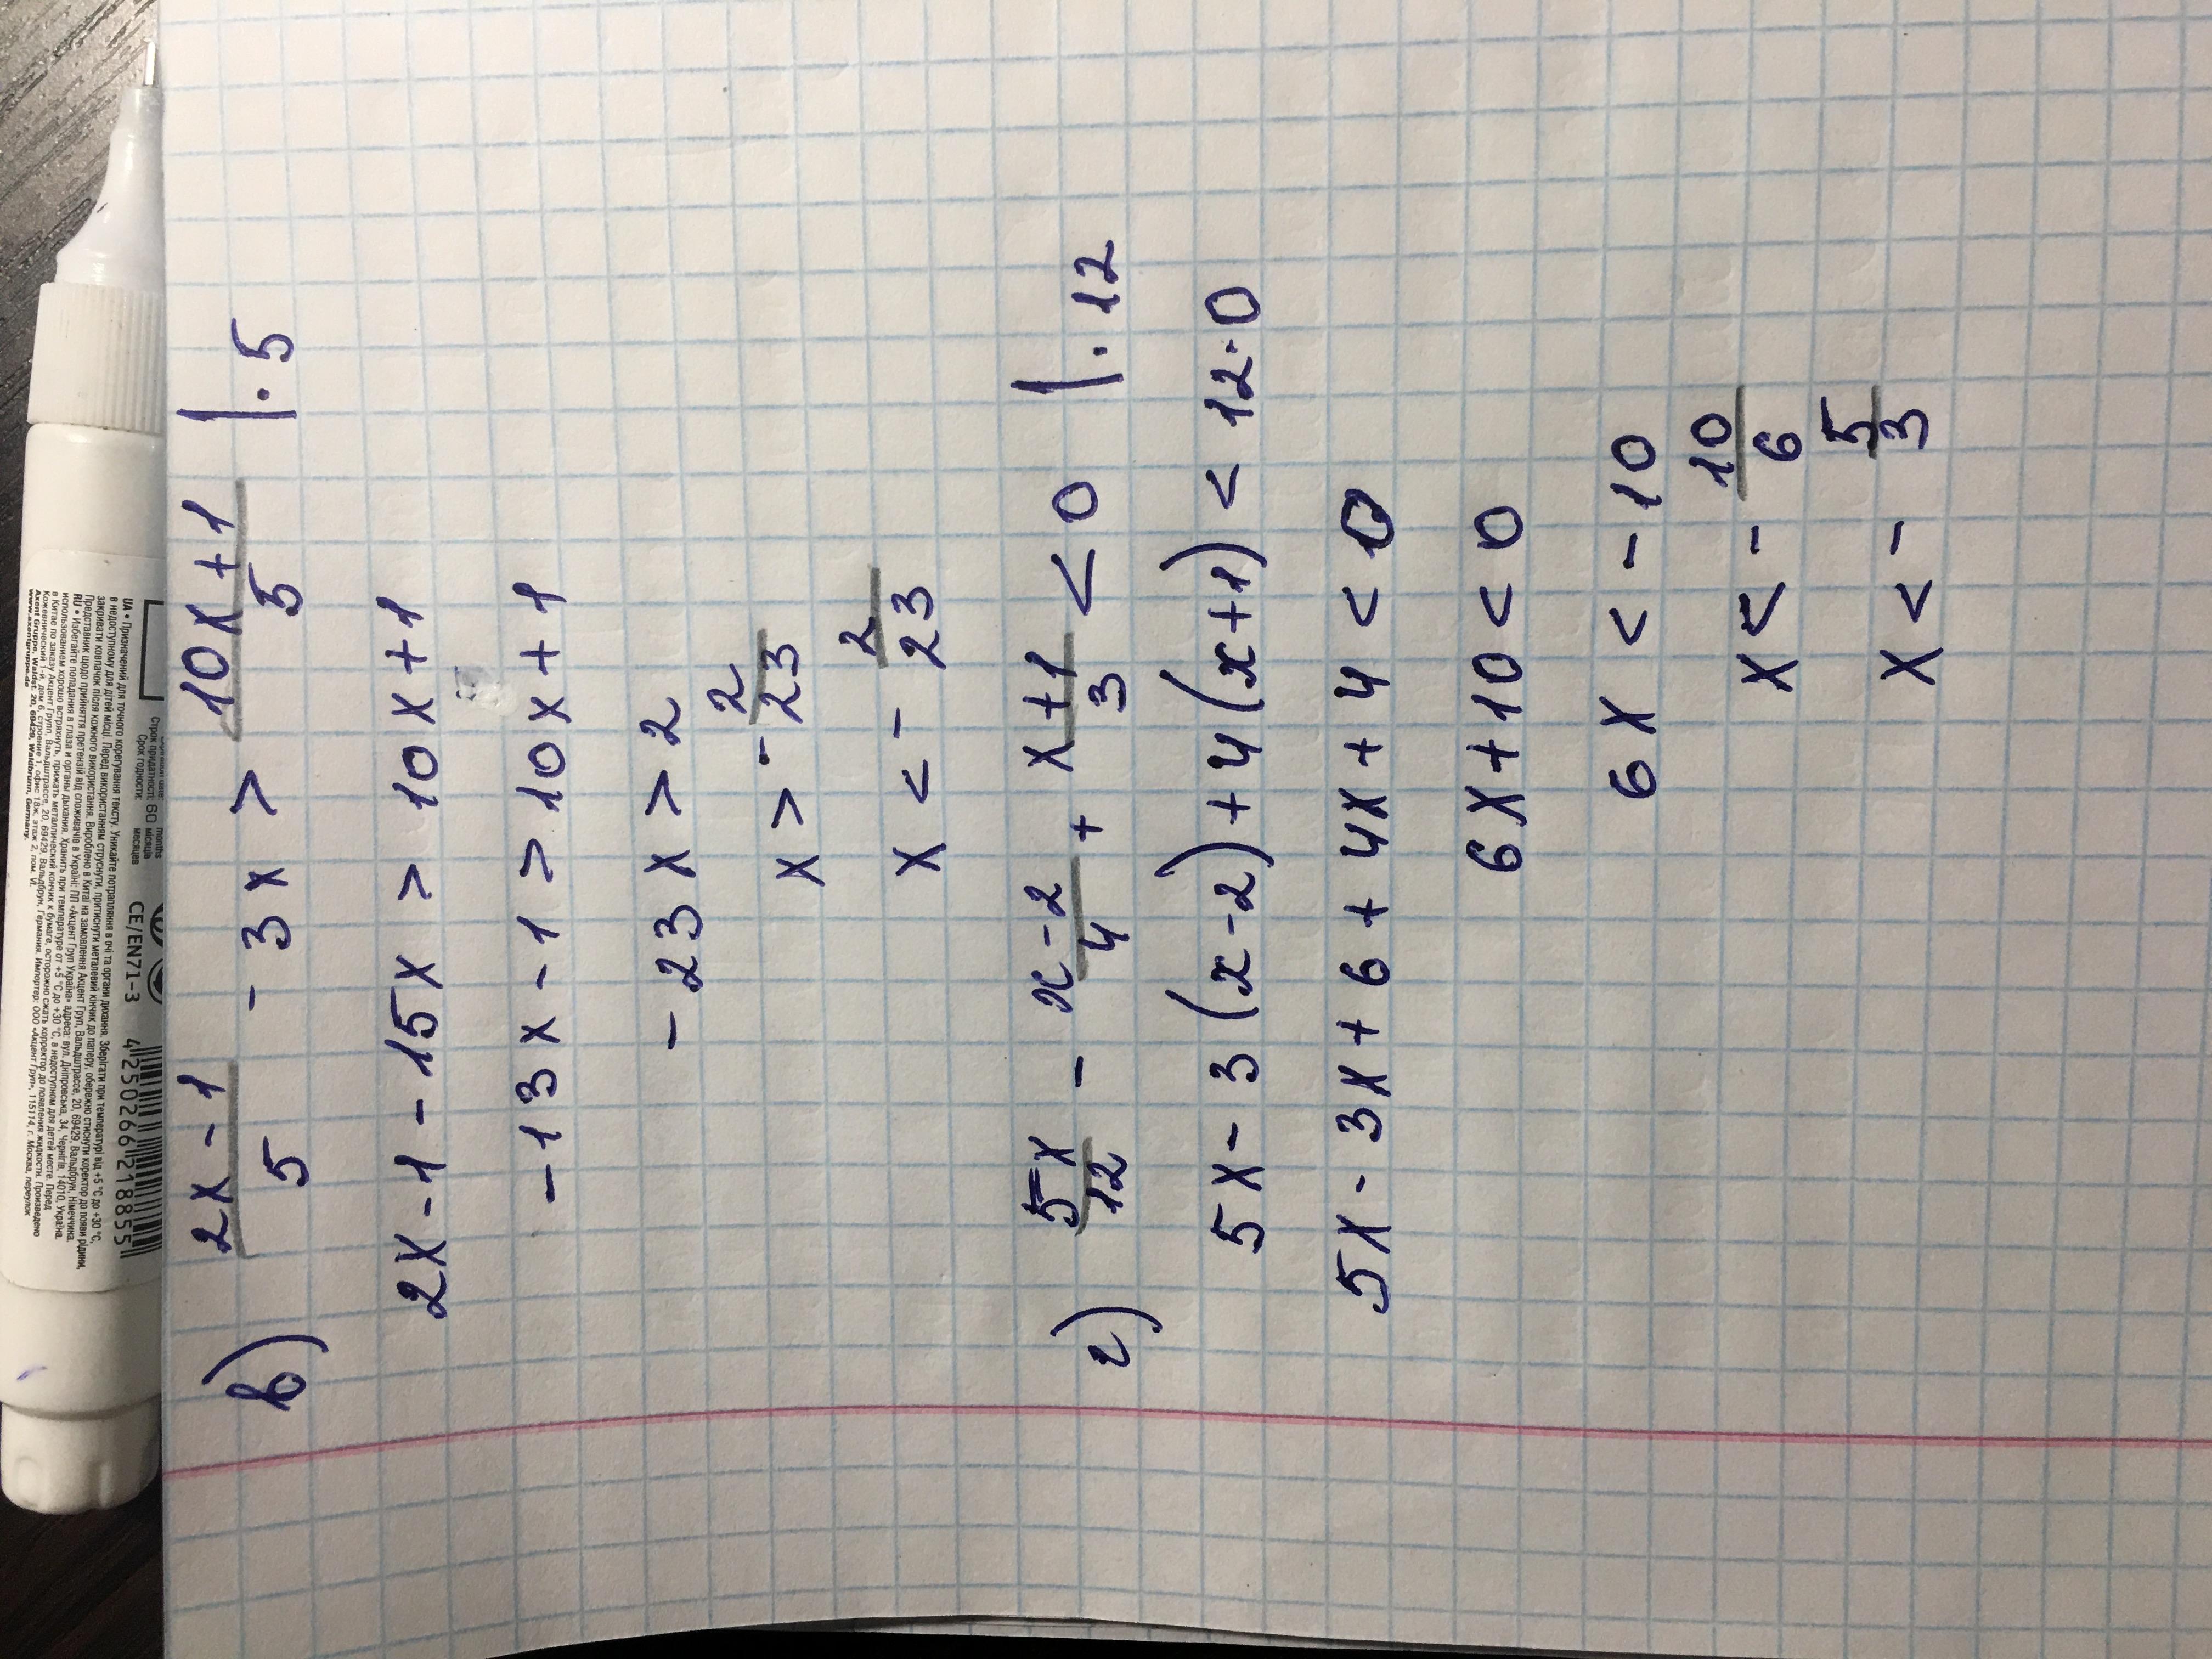 в) 2x-1/5 - 3x > 10x+1/5 |·5
2x-1-15x > 10x+1
-13x-1 > 10x+1
-23x > 2
x > -2/23
x < -2/23
г) 5x/12 - x-2/4 + x+1/3 < 0 |·12
5x-3(x-2)+4(x+1) < 12·0
5x-3x+6+4x+4 < 0
6x+10 < 0
6x < -10
x < -10/6
x < -5/3
UA • Призначений для точного корегування тексту. Уникайте потрапляння в очі та органи дихання. Зберігати при температурі від +5 °C до +30 °C,
в недоступному для дітей місці. Перед використанням струснути, притиснути металевий кінчик до паперу, обережно стиснути коректор до появи рідини,
закривати ковпачок після кожного використання. Вироблено в Китаї на замовлення Акцент Груп, Вальдштрассе, 20, 69429, Вальдбрун, Німеччина.
Представник щодо прийняття претензій від споживачів в Україні: ПП «Акцент Груп Україна» адреса: вул. Дніпровська, 34, Чернігів, 14010, Україна.
RU • Избегайте попадания в глаза и органы дыхания. Хранить при температуре от +5 °C до +30 °C, в недоступном для детей месте. Перед
использованием хорошо встряхнуть, прижать металлический кончик к бумаге, осторожно сжать корректор до появления жидкости. Произведено
в Китае по заказу Акцент Групп, Вальдштрассе, 20, 69429, Вальдбрун, Германия. Импортер: ООО «Акцент Груп», 115114, г. Москва, переулок
Кожевнический 1-й, дом 6, строение 1, офис 18ж, этаж 2, пом. VI.
Axent Gruppe, Waldst. 20, 69429, Waldbrunn, Germany.
www.axentgruppe.de
Строк придатності: 60 months
Срок годности: місяців
месяцев
CE/EN71-3
4 250266 218855